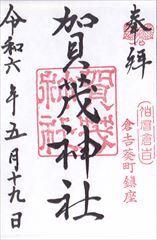 奉拝
伯耆倉吉
倉吉葵町鎮座
加茂神社
賀茂神社
令和六年五月十九日